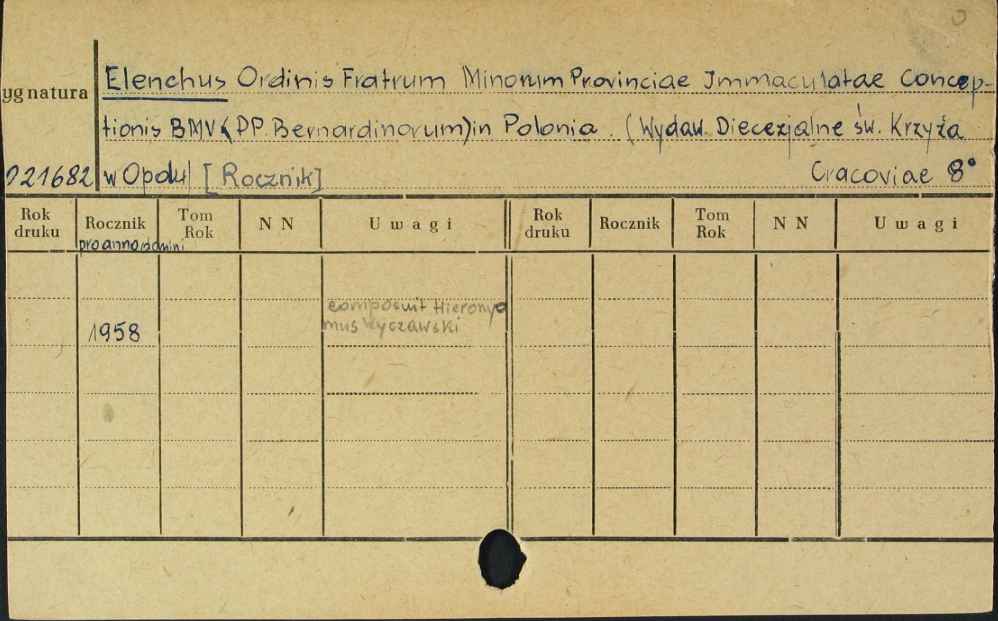 Elenchus Ordinis Fratrum Minorum Provinciae Immaculatae Concep-
ygnatura
tionis BMV (PP. Bernardinorum) in Polonia. (Wydaw. Diecezjalne św. Krzyża
021682 w Opolu) [Rocznik] Cracoviae 8°
Rok druku Rocznik Tom Rok N N Uwagi Rok druku Rocznik Tom Rok N N Uwagi
pro anno domini
composuit Hierony
1958 mus Wyczawski